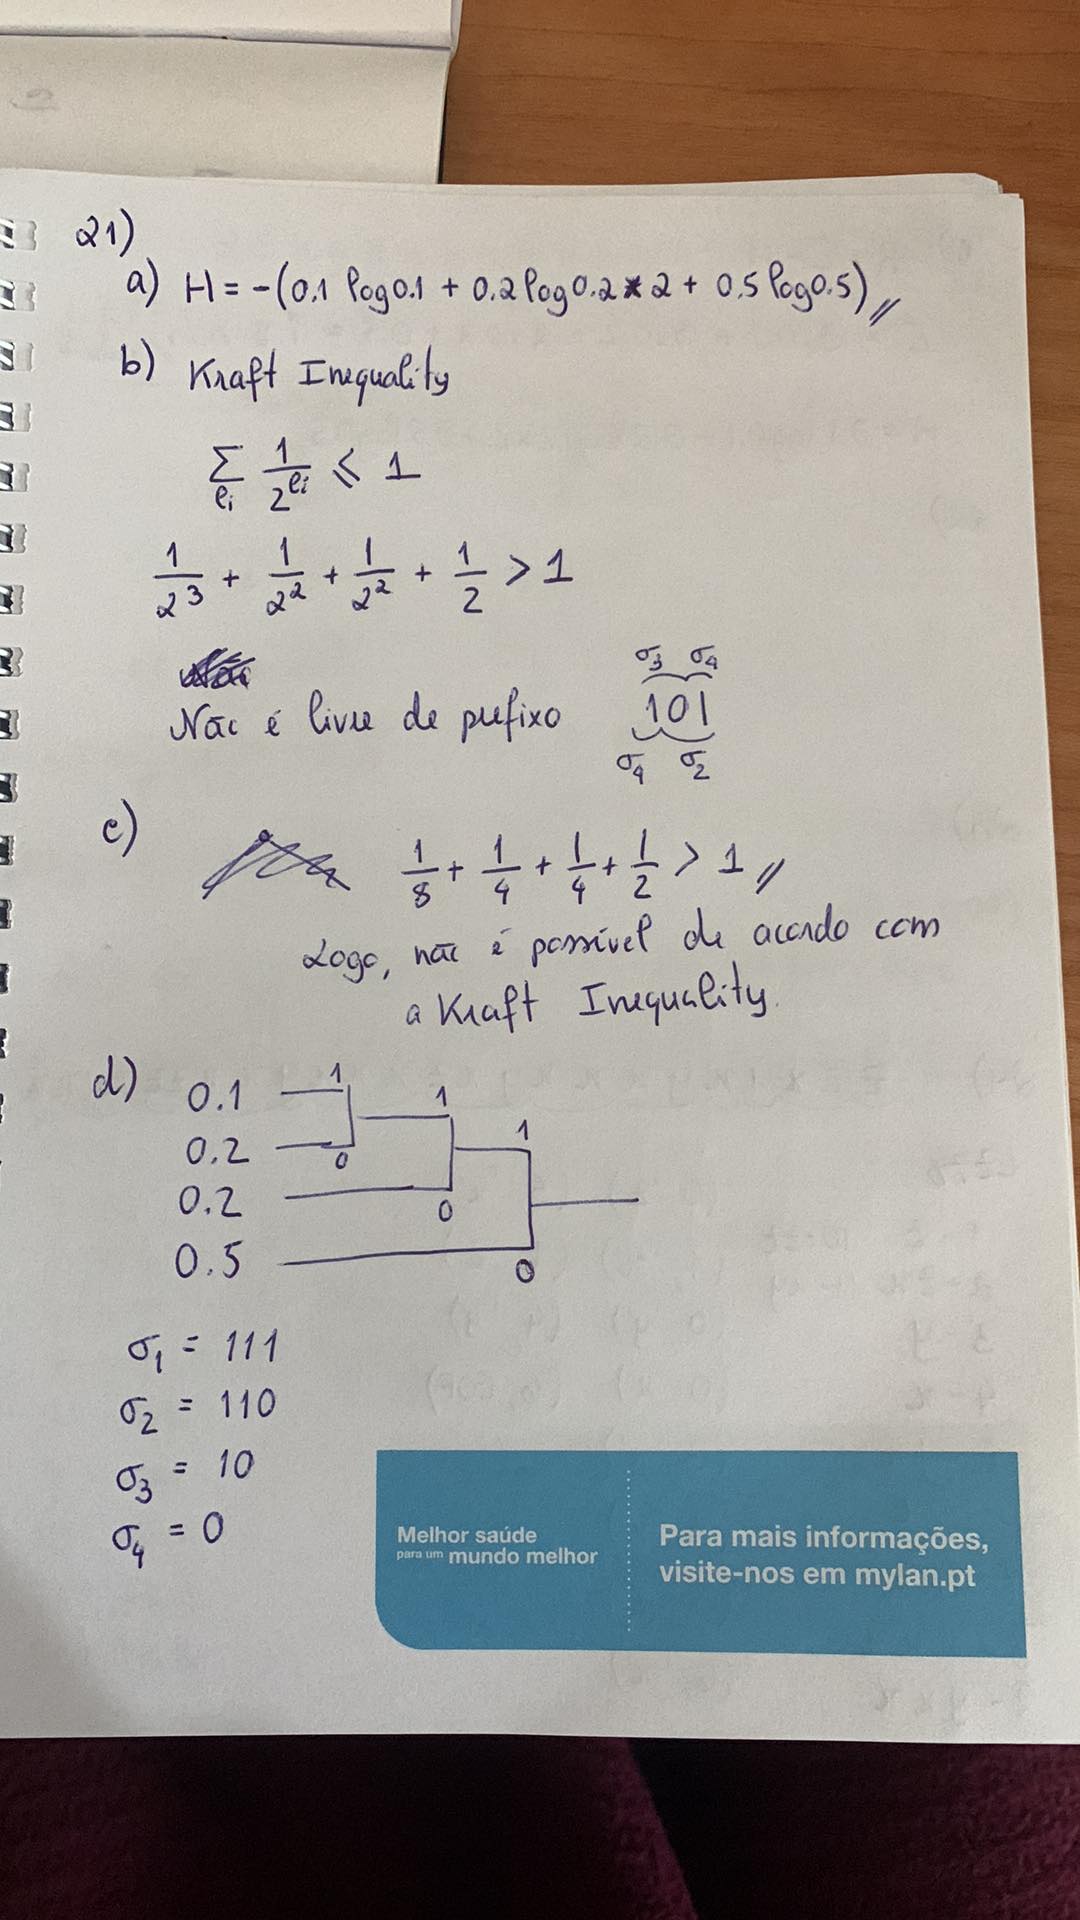 21)
a) H = -(0.1 log0.1 + 0.2log0.2*2 + 0.5log0.5)//
b) Kraft Inequality
∑ℓi 1/2^ℓi ≤ 1
1/2³ + 1/2² + 1/2² + 1/2 > 1
Não é livre de prefixo
σ3 σ4
101
σ4 σ2
c) 1/8 + 1/4 + 1/4 + 1/2 > 1 //
Logo, não é possível de acordo com
a Kraft Inequality.
d)
0.1 1
0.2 0 1
0.2 0 1
0.5 0
σ1 = 111
σ2 = 110
σ3 = 10
σ4 = 0
Melhor saúde
para um mundo melhor
Para mais informações,
visite-nos em mylan.pt